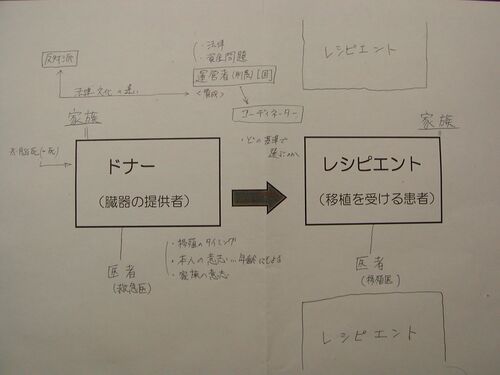 ・法律
・資金問題
反対派
運営者(制度)[国]
法律・文化の違い
<賛成>
コーディネーター
レシピエント
家族
家族
・どの基準で
選ぶのか
ドナー
(臓器の提供者)
レシピエント
(移植を受ける患者)
医者
(救急医)
・移植のタイミング
・本人の意志…年齢にもよる
・家族の意志
医者
(移植医)
レシピエント